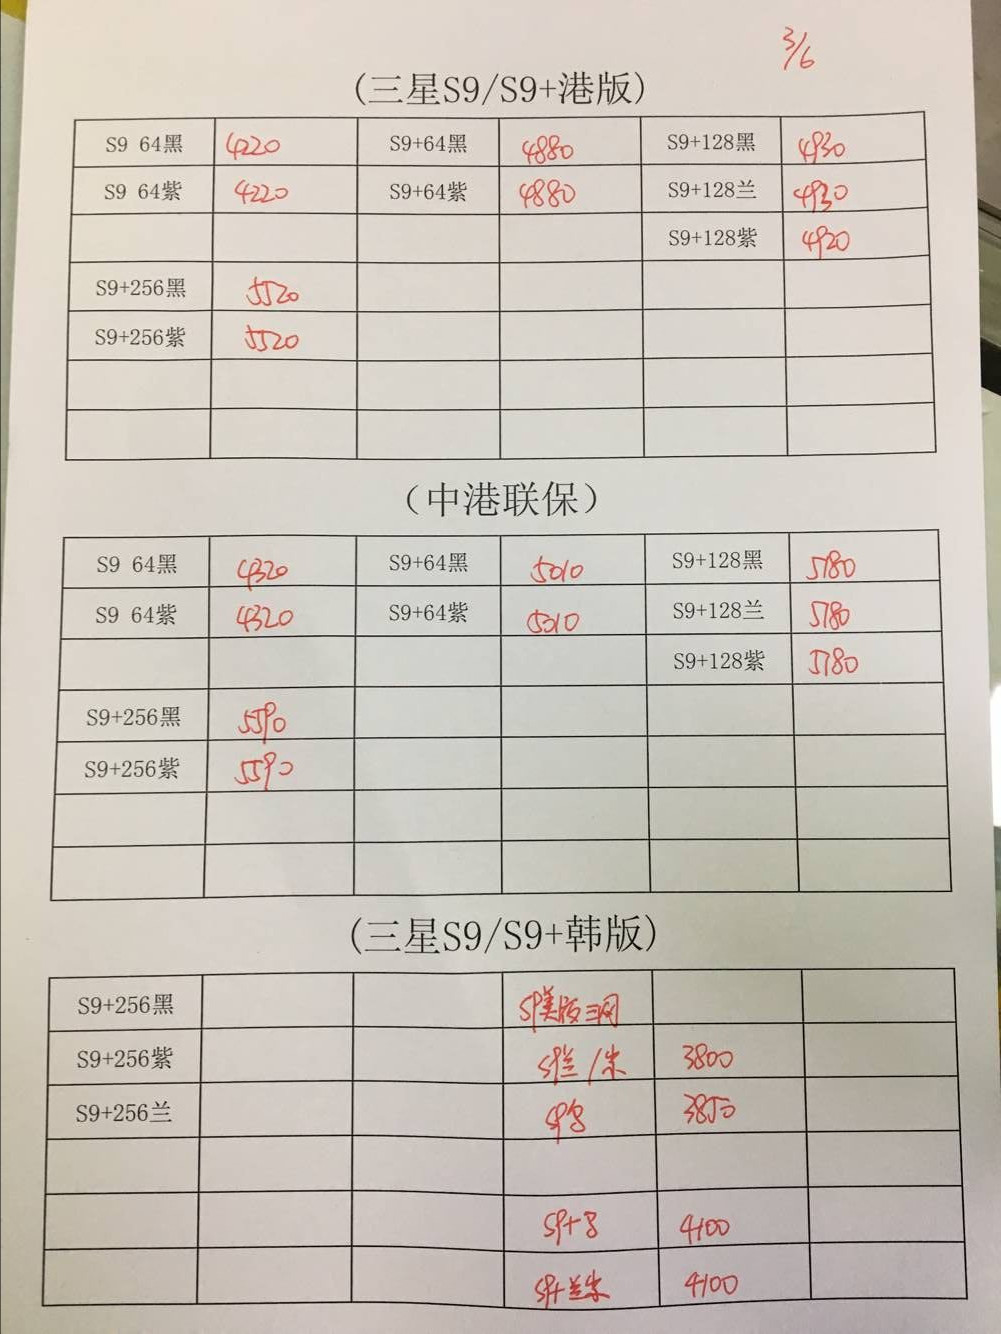 3/6
(三星S9/S9+港版)
S9 64黑 4220 S9+64黑 4880 S9+128黑 4930
S9 64紫 4220 S9+64紫 4880 S9+128兰 4930
S9+128紫 4920
S9+256黑 5520
S9+256紫 5520
（中港联保）
S9 64黑 4320 S9+64黑 5010 S9+128黑 5180
S9 64紫 4320 S9+64紫 5010 S9+128兰 5180
S9+128紫 5180
S9+256黑 5590
S9+256紫 5590
(三星S9/S9+韩版)
S9+256黑 S9美版三网
S9+256紫 S9兰/紫 3800
S9+256兰 S9 3850
S9+ 4100
S9+兰紫 4100